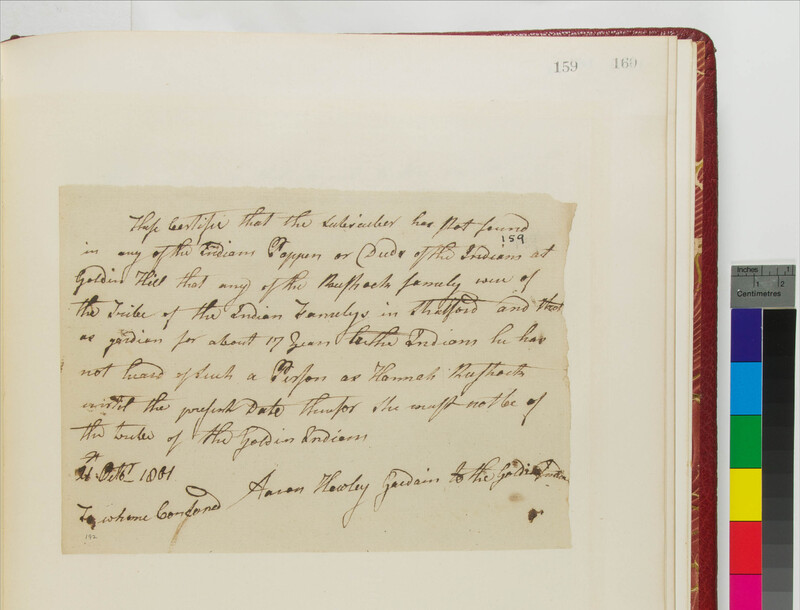 159 160
These Certifie that the Subscriber has Not found
in any of the Indians Pappers or Deeds of the Indians at
159
Golden Hill that any of the family were of
the Tribe of the Indian Famelys in Stratford and that
as gardian for about 17 Years to the Indians he has
not heard of Such a Person as Hannah
until the present Date therefor She must not be of
the tribe of the Goldin Indians
21 Octbr 1801
Aaron Hawley Gardain to the Goldin Indians
To whome Consarnd
192
Inches 1
1 2
Centimetres